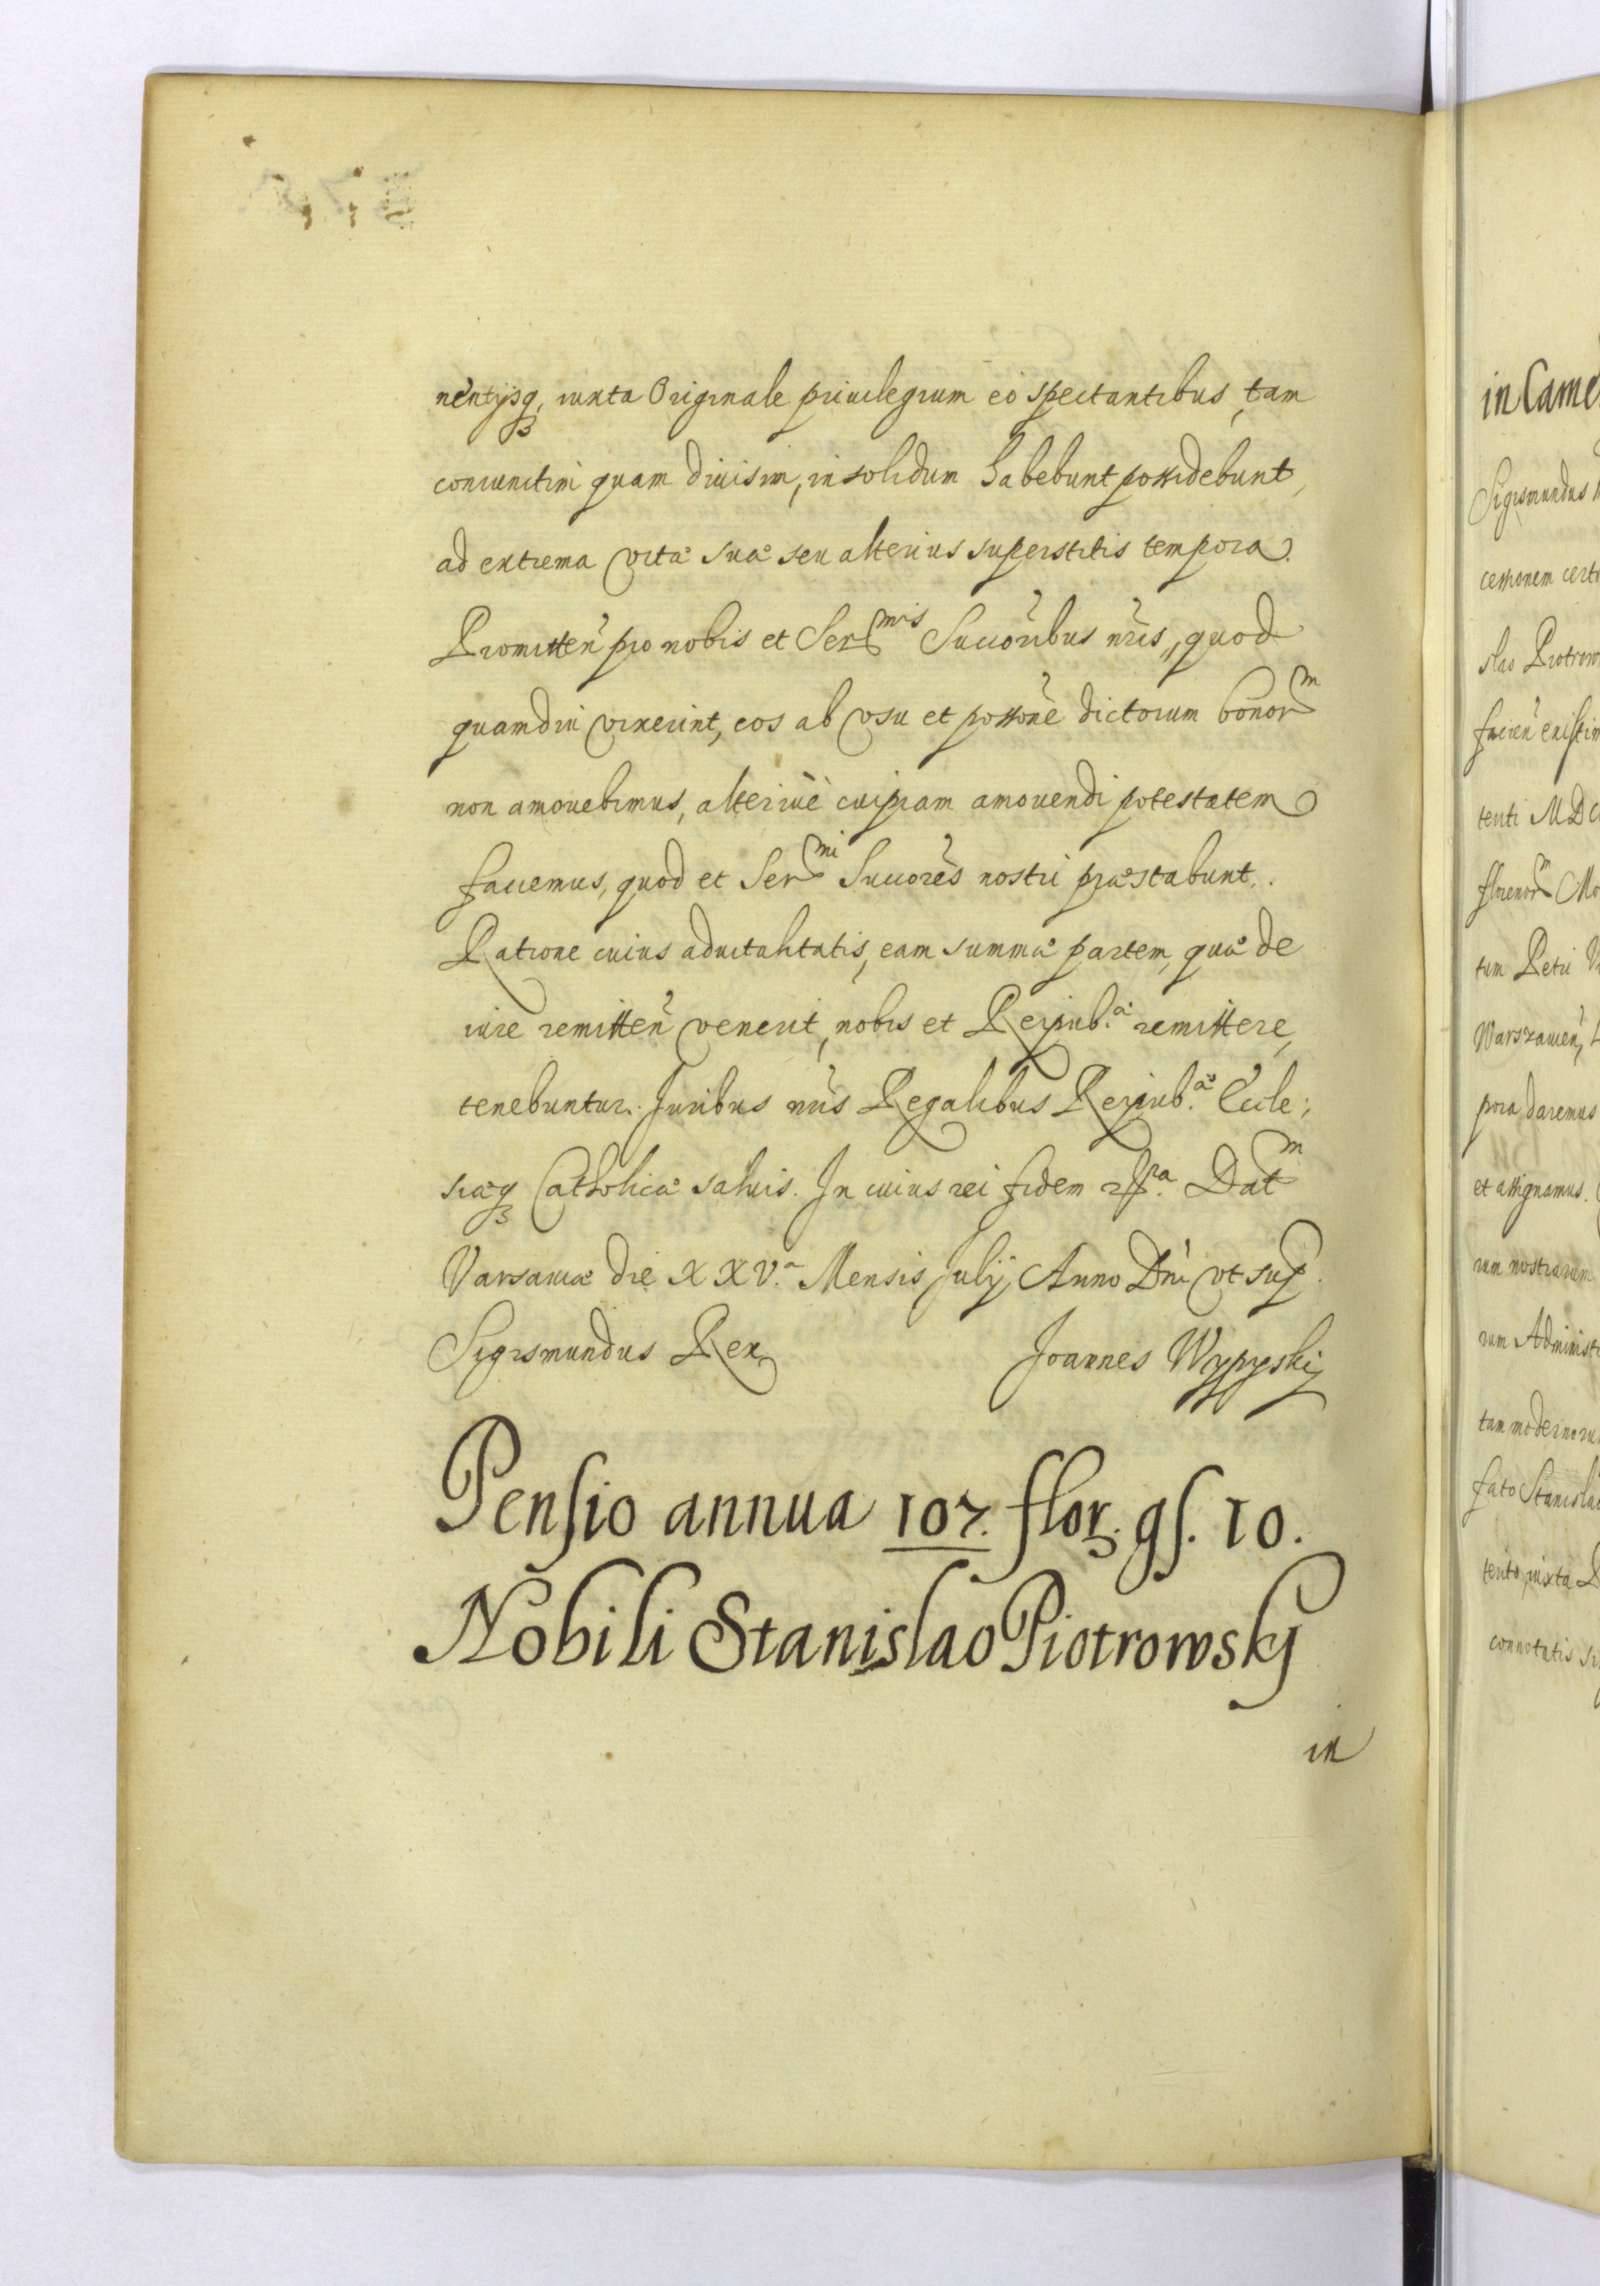 nentijsq, iuxta Originale priuilegium eo spectantibus, tam
coniunctim quam diuisim, in solidum habebunt possidebunt,
ad extrema vitæ suæ seu alterius superstitis tempora.
Promitten pro nobis et Ser<sup>mis</sup> Succoribus nris, quod
quamdiu vixerint, eos ab vsu et possone dictorum bonor<sup>m</sup>
non amouebimus, alteriue cuipiam amouendi potestatem
faciemus, quod et Ser<sup>mi</sup> Succores nostri præstabunt.
Ratione cuius aduitalitatis, eam summæ partem, quæ de
iure remitten venerit, nobis et Reipub.<sup>æ</sup> remittere,
tenebuntur. Juribus nris Regalibus Reipub.<sup>æ</sup> Eccle;
siæq Catholicæ saluis. In cuius rei fidem Dat<sup>m</sup>
Varsauiæ die XXV.<sup>a</sup> Mensis Julij Anno Dni vt sup.
Sigismundus Rex
Joannes Wypyski
Pensio annua 107. flor. gs. 10.
Nobili Stanislao Piotrowskj
in
in Came
Sigismundus
cessionem cert
slao Piotrow
tenti MDC
florenor<sup>m</sup> Mo
tum Petri
Warszauien,
pora daremus
et assignamus.
rum nostrarum
rum Administ
tam modernoru
fato Stanisla
terito, iuxta
connotatis